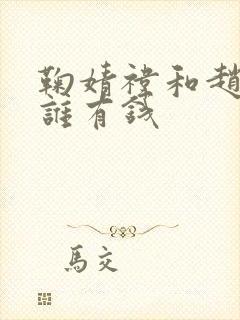 鞠婧禕和趙
誰有錢
馬交